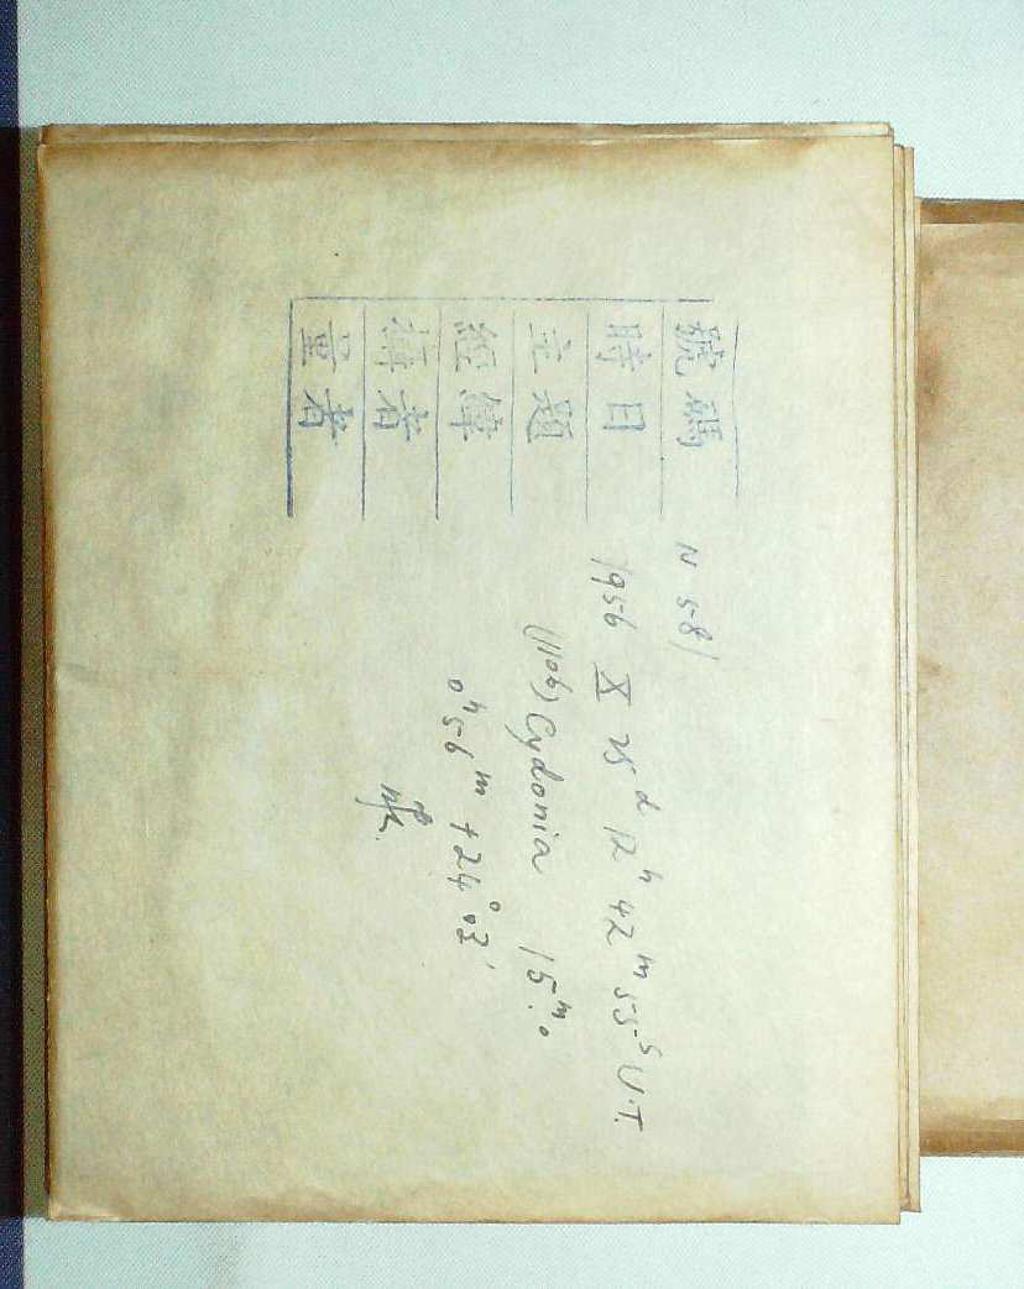 號碼 N 581
時日 1956 X 25ᵈ 12ʰ 42ᵐ 55ˢ U.T.
主題 (1106) Cydonia 15ᵐ.0
經緯 0ʰ56ᵐ +24°03'
量者